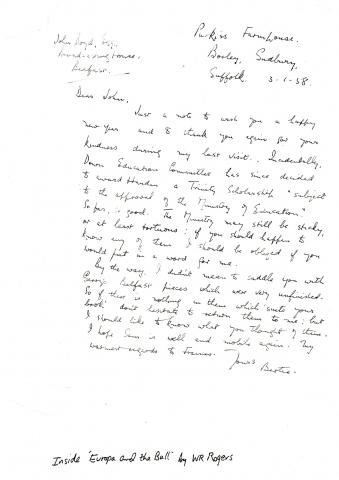 John Boyd, Esq.,
Broadcasting House,
Belfast.
Purkiss Farmhouse,
Borley, Sudbury,
Suffolk. 3-1-58.
Dear John,
Just a note to wish you a happy
new year and to thank you again for your
kindness during my last visit. Incidentally,
Down Education Committee has since decided
to award Harden a Trinity Scholarship "subject
to the approval of the Ministry of Education".
So far, so good. The Ministry may still be sticky,
or at least tortuous: if you should happen to
know any of them I should be obliged if you
would put in a word for me.
By the way, I didn't mean to saddle you with
George's Belfast pieces which were very unfinished.
So if there is nothing in them which suits your
book don't hesitate to return them to me: but
I should like to know what you thought of them.
I hope Sam is well and mobile again. My
warmest regards to Frances.
Yours
Bertie.
Inside "Europa and the Bull" by WR Rogers